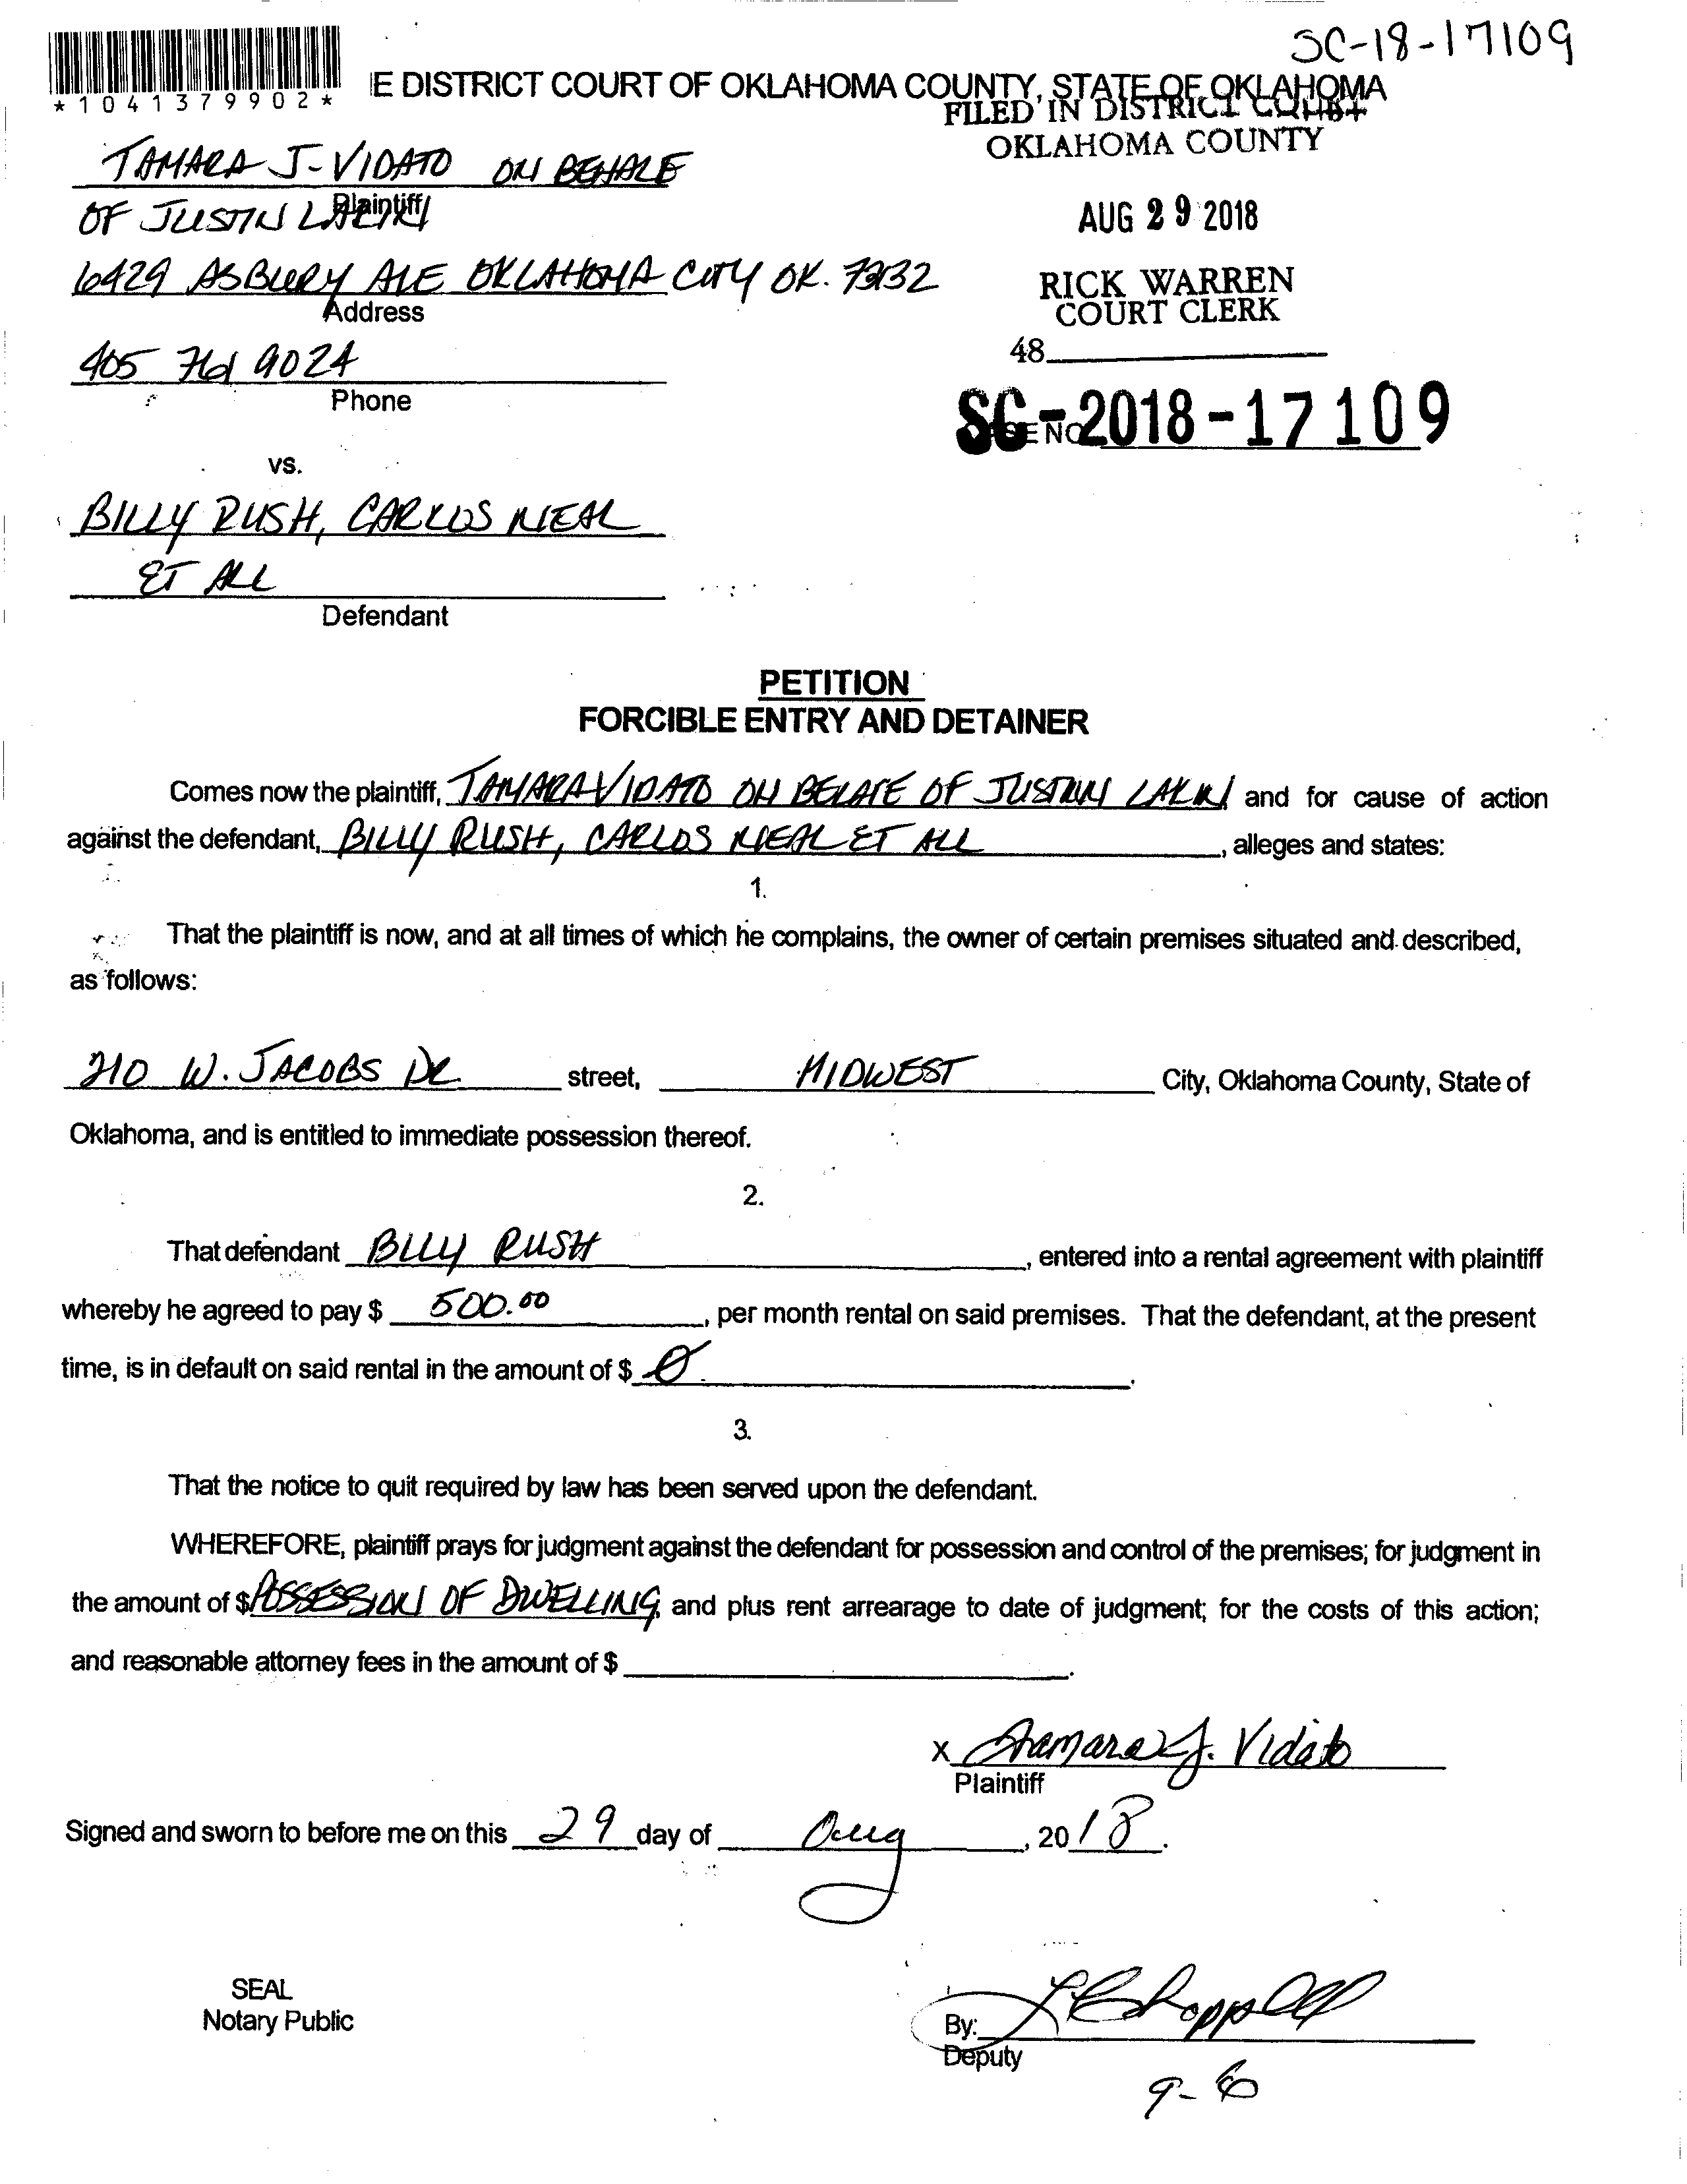 SC-18-17109
*1041379902*
E DISTRICT COURT OF OKLAHOMA COUNTY, STATE OF OKLAHOMA
FILED IN DISTRICT COURT
OKLAHOMA COUNTY
TAMARA J-VIDATO ON BEHALF
Plaintiff
OF JUSTIN LAKIN
AUG 29 2018
6429 ASBURY AVE OKLAHOMA CITY OK. 73132
Address
RICK WARREN
COURT CLERK
48
405 761 9024
Phone
SC-2018-17109
vs.
BILLY RUSH, CARLOS NEAL
ET ALL
Defendant
PETITION
FORCIBLE ENTRY AND DETAINER
Comes now the plaintiff, TAMARA VIDATO ON BELAFE OF JUSTIN LAKIN and for cause of action
against the defendant, BILLY RUSH, CARLOS NEAL ET ALL, alleges and states:
1.
That the plaintiff is now, and at all times of which he complains, the owner of certain premises situated and described,
as follows:
210 W. JACOBS DR. street, MIDWEST City, Oklahoma County, State of
Oklahoma, and is entitled to immediate possession thereof.
2.
That defendant BILLY RUSH, entered into a rental agreement with plaintiff
whereby he agreed to pay $ 500.00, per month rental on said premises. That the defendant, at the present
time, is in default on said rental in the amount of $ 0.
3.
That the notice to quit required by law has been served upon the defendant.
WHEREFORE, plaintiff prays for judgment against the defendant for possession and control of the premises; for judgment in
the amount of $ POSSESSION OF DWELLING, and plus rent arrearage to date of judgment; for the costs of this action;
and reasonable attorney fees in the amount of $ .
X Tamara J. Vidato
Plaintiff
Signed and sworn to before me on this 29 day of Aug, 2018.
SEAL
Notary Public
By:
Deputy
9-6